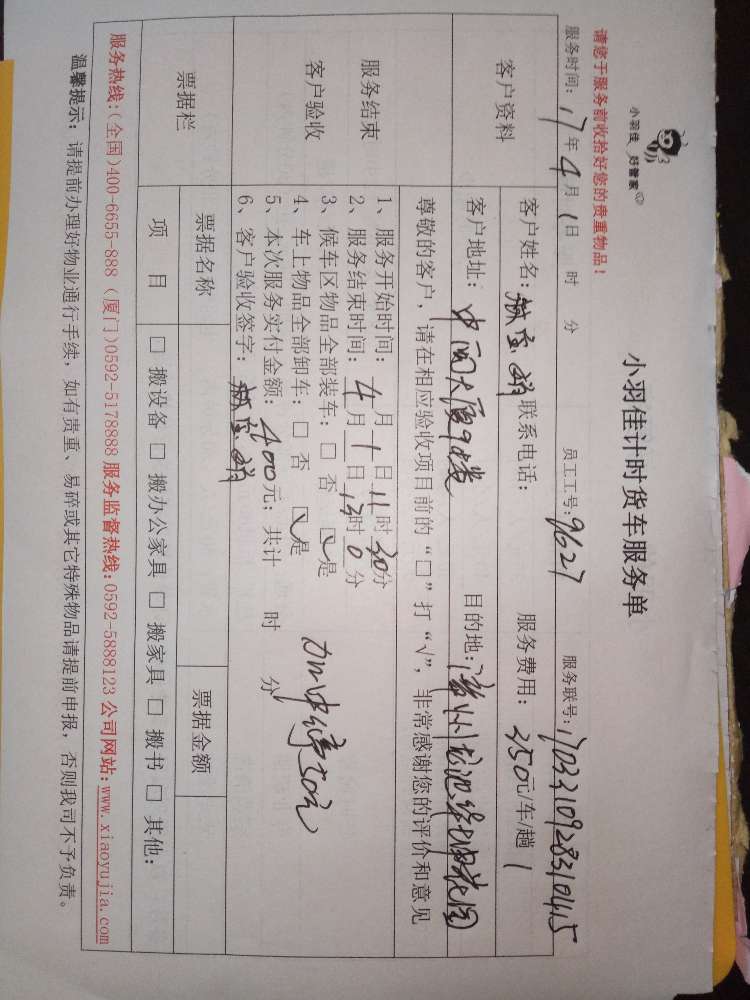 小羽佳 好管家
小羽佳计时货车服务单
请您于服务前收拾好您的贵重物品！
服务时间：17年4月1日 时 分 员工工号：9627 服务联号：1703310928310415
客户资料
客户姓名： 联系电话： 服务费用：350元/车/趟 1
客户地址：中闽大厦9楼 目的地：漳州龙池
尊敬的客户，请在相应验收项目前的“□”打“√”，非常感谢您的评价和意见
服务结束
客户验收
1、服务开始时间：4月1日11时30分
2、服务结束时间：4月1日13时0分
3、候车区物品全部装车：□ 否 ☑是
4、车上物品全部卸车：□ 否 ☑是
5、本次服务实付金额：400元；共计 时 分
加中停50元
6、客户验收签字：
票据栏
票据名称 票据金额
项 目 □ 搬设备 □ 搬办公家具 □ 搬家具 □ 搬书 □ 其他：
服务热线：(全国)400-6655-888 (厦门)0592-5178888 服务监督热线：0592-5888123 公司网站：www.xiaoyujia.com
温馨提示：请提前办理好物业通行手续，如有贵重、易碎或其它特殊物品请提前申报，否则我司不予负责。